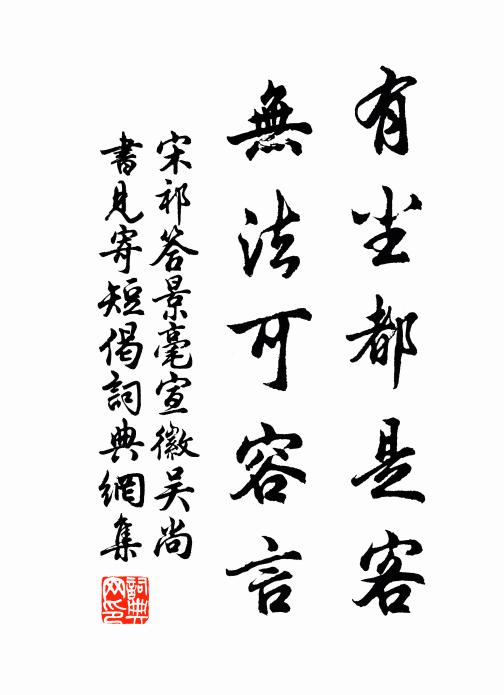 有尘都是客
無法可容言
宋祁答景毫宣徽吴尚
書見寄短偈詞典網集
詞典网印